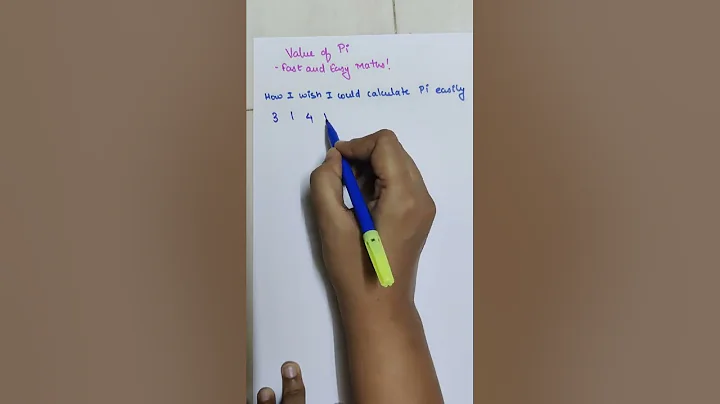 Value of Pi
- Fast and Easy Maths!
How I wish I could calculate Pi easily
3 1 4 1